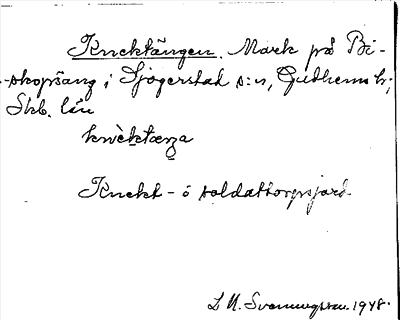 Knektängen. Mark på Bi-
skopsäng i Sjögerstad s:n, Gudhems hd,
Skb. län
knèktæŋa
Knekt- ö soldattorpsjord
L M. Svenungsson. 1948.